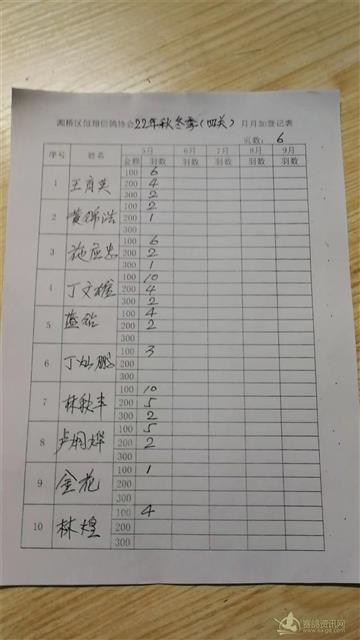 湘桥区恒翔信鸽协会22年秋冬季(四关)月月加登记表
页数: 6
序号 姓名 5月 6月 7月 8月 9月
金额 羽数 羽数 羽数 羽数 羽数
1 王育英 100 6
200 4
300 2
2 黄锦浩 100 2
200 1
300
3 施应忠 100 6
200 2
300 1
4 丁文雄 100 10
200 4
300 2
5 100 4
200 2
300
6 丁灿鹏 100 3
200
300
7 林秋丰 100 10
200 5
300 2
8 卢炯烨 100 5
200 2
300
9 金花 100 1
200
300
10 林煌 100 4
200
300
赛鸽资讯网